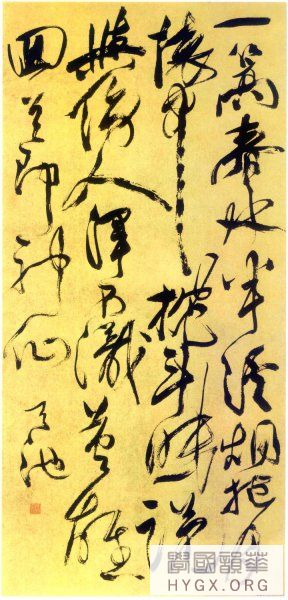 一篙春水半溪烟抱月
懷中枕斗眠說
與傍人渾不識英雄
回首即神仙 天池
華韻國學
HYGX.ORG